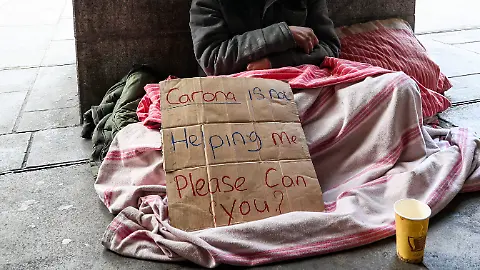 Carona is not
Helping me
Please Can
you?